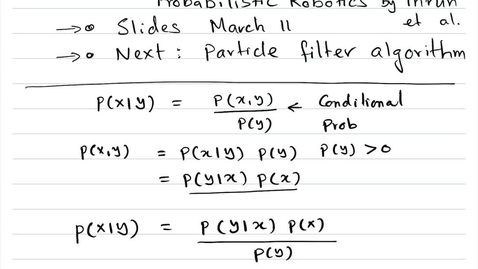 Probabilistic Robotics by Thrun et al.
→ Slides March 11
→ Next : Particle filter algorithm
P(x|y) = P(x,y) / P(y) ← Conditional Prob
P(x,y) = P(x|y) P(y) P(y) > 0
= P(y|x) P(x)
P(x|y) = P(y|x) P(x) / P(y)